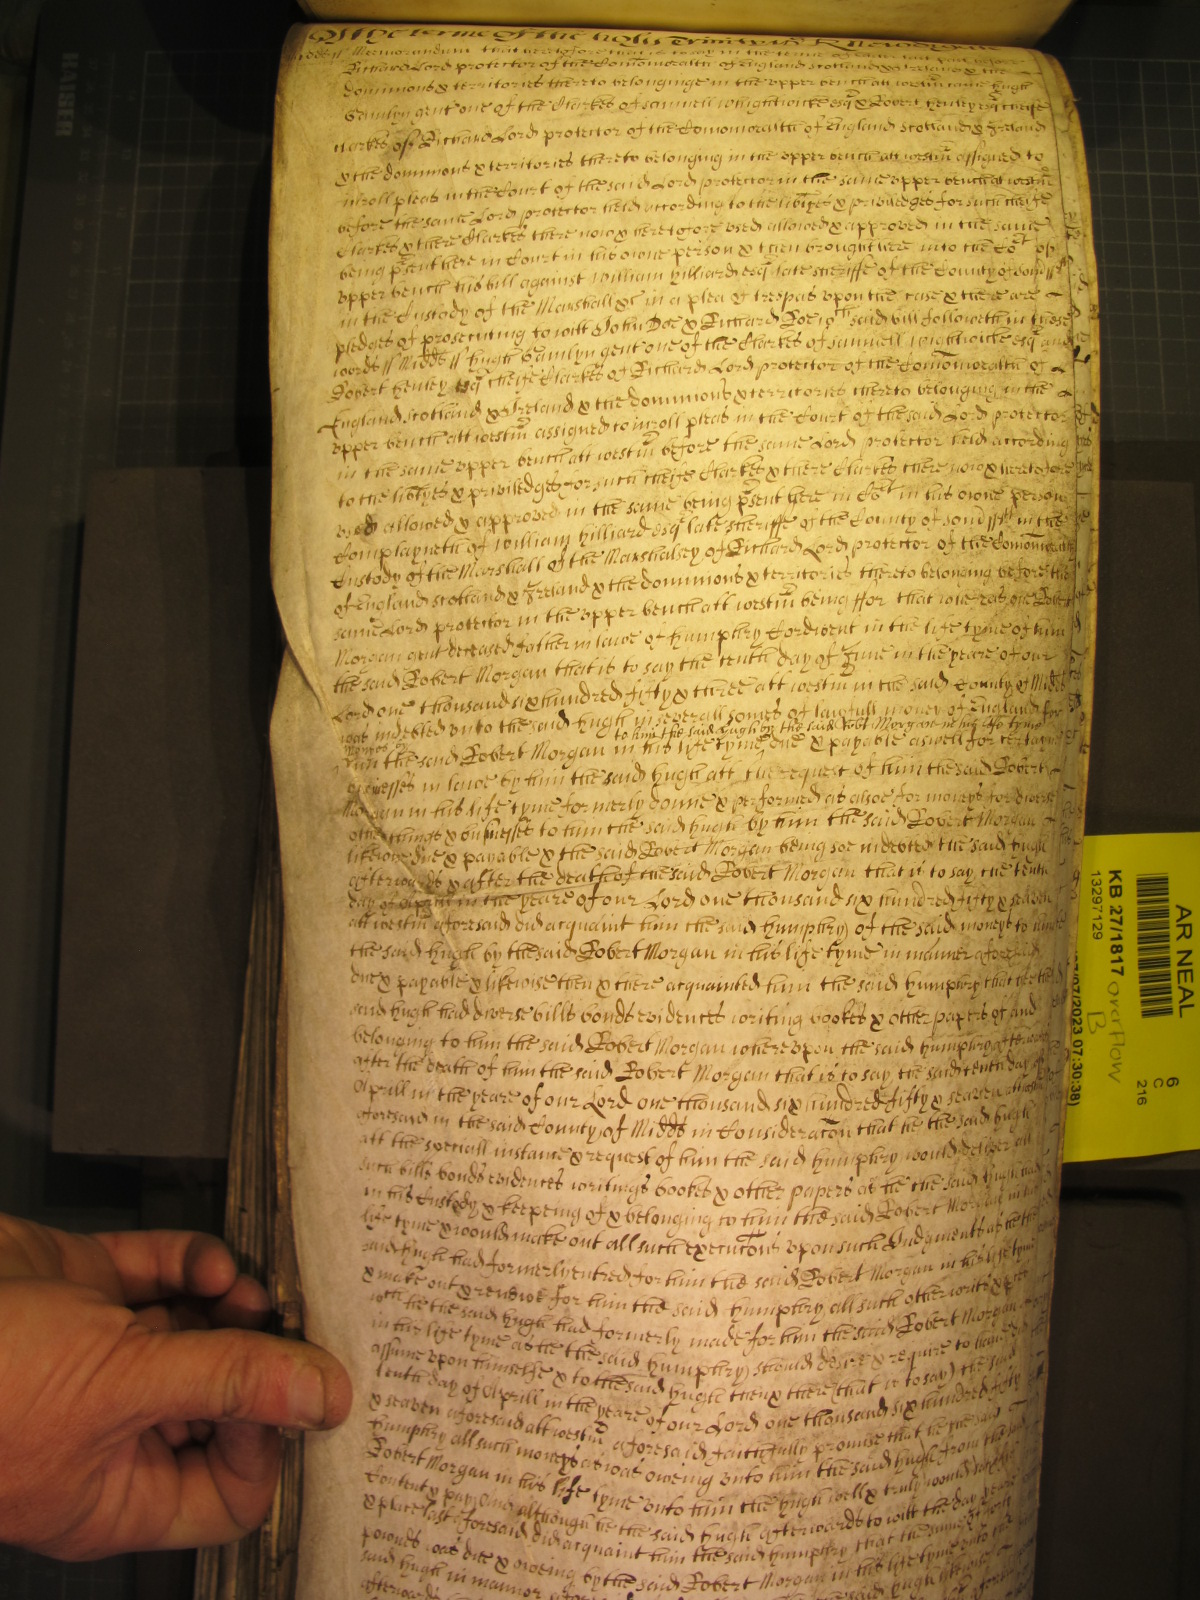 Of the terme of the holy Trinity
Midds ss Memorandum that heretofore that is to say in the terme of Easter last past before
Richard Lord protector of the Comonwealth of England Scotland & Ireland & the
dominions & territories thereto belonginge in the upper bench att westm̃ came hugh
Hamlyn gent one of the Clarkes of Samuell Wightwicke esq & Robert henley esq cheife
clarkes of Richard Lord protector of the Comonwealth of England Scotland & Ireland
& the dominions & territories thereto belonging in the upper bench att westm̃ assigned to
inroll pleas in the Court of the said Lord protector in the same upper bench at westm̃
before the same Lord protector held according to the libtyes & priviledges for such cheife
Clarkes & there Clarkes there now & heretofore used allowed & approved in the same
being p̃sent here in Court in his owne person & then brought here into the Cort of
upper bench his bill against William hilliard esq late sheriffe of the County of Som̃sett
in the Custody of the Marshall &c in a plea of trespas upon the case & there are
pledges of prosecuting to witt John Doe & Richard Roe wch said bill followeth in these
words ss Midds ss hugh Hamlyn gent one of the Clarkes of Samuell Wightwicke esq and
Robert henley esq cheife Clarkes of Richard Lord protector of the Comonwealth of
England Scotland & Ireland & the dominions & territories thereto belonging in the
upper bench att westm̃ assigned to inroll pleas in the Court of the said Lord protector
in the same upper bench att westm̃ before the same Lord protector held according
to the libtyes & priviledges for such cheife Clarkes & there Clarkes there now & heretofore
used allowed & approved in the same being p̃sent here in Cort in his owne person
Complayneth of William hilliard esq late sheriffe of the County of Som̃sett in the
Custody of the Marshall of the Marshalsey of Richard Lord protector of the Comonwealth
of England Scotland & Ireland & the dominions & territories thereto belonging before the
same Lord protector in the upper bench att westm̃ being ffor that whereas one Robert
Morgan gent deceased father in lawe of humphry Cordwent in the life tyme of him
the said Robert Morgan that is to say the tenth day of June in the yeare of our
Lord one thousand six hundred fifty & three att westm̃ in the said County of Midds
was indebted unto the said hugh in severall somes of lawfull money of England for
moneys
to him the said hugh by the said Robt Morgan in his life tyme
him the said Robert Morgan in his life tyme due & payable aswell for certayne
businesses in lawe by him the said hugh att the request of him the said Robert
Morgan in his life tyme formerly donne & performed as alsoe for moneys for diverse
other things & businesses to him the said hugh by him the said Robert Morgan
likewise due & payable & the said Robert Morgan being soe indebted the said hugh
afterwards & after the death of the said Robert Morgan that is to say the tenth
day of Aprill in the yeare of our Lord one thousand six hundred fifty & seaven
att westm̃ aforesaid did acquaint him the said humphry of the said moneys to him
the said hugh by the said Robert Morgan in his life tyme in manner aforesaid
due & payable & likewise then & there acquainted him the said humphry that he the
said hugh had diverse bills bonds evidences writing bookes & other papers of and
belonging to him the said Robert Morgan where upon the said humphry afterwards
after the death of him the said Robert Morgan that is to say the said tenth day of
Aprill in the yeare of our Lord one thousand six hundred fifty & seaven att westm̃
aforesaid in the said County of Midds in Consideracõn that he the said hugh
att the speciall instance & request of him the said humphry would deliver all
such bills bonds evidences writings bookes & other papers as he the said hugh had
in his Custody & keepeing of & belonging to him the said Robert Morgan in his
life tyme & would make out all such executõns upon such Judgments as he the
said hugh had formerly entred for him the said Robert Morgan in his life tyme
& make out & renewe for him the said humphry all such other writs & p
wch he the said hugh had formerly made for him the said Robert Morgan
in his life tyme as he the said humphry should desire & require to have
assume upon himselfe & to the said hugh then & there (that is to say) the said
tenth day of Aprill in the yeare of our Lord one thousand six hundred fifty
& seaven aforesaid att westm̃ aforesaid faithfully promise that he the said
humphry all such moneys as was oweing unto him the said hugh from the said
Robert Morgan in his life tyme unto him the hugh well & truly would satisfie
Content & pay And although he the said hugh afterwards to witt the day yeare
& place last aforesaid did acquaint him the said humphry that the sume of forty
pounds was due & oweing by the said Robert Morgan in his life tyme unto the
said hugh in manner aforesaid
afterwards
AR NEAL
KB 27/1817 overflow
13297129
B
6
C
216
/07/2023 07:30:38)